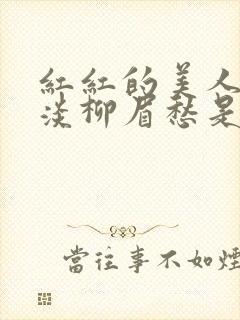 红红的美人
淡柳眉愁是
當往事不如煙